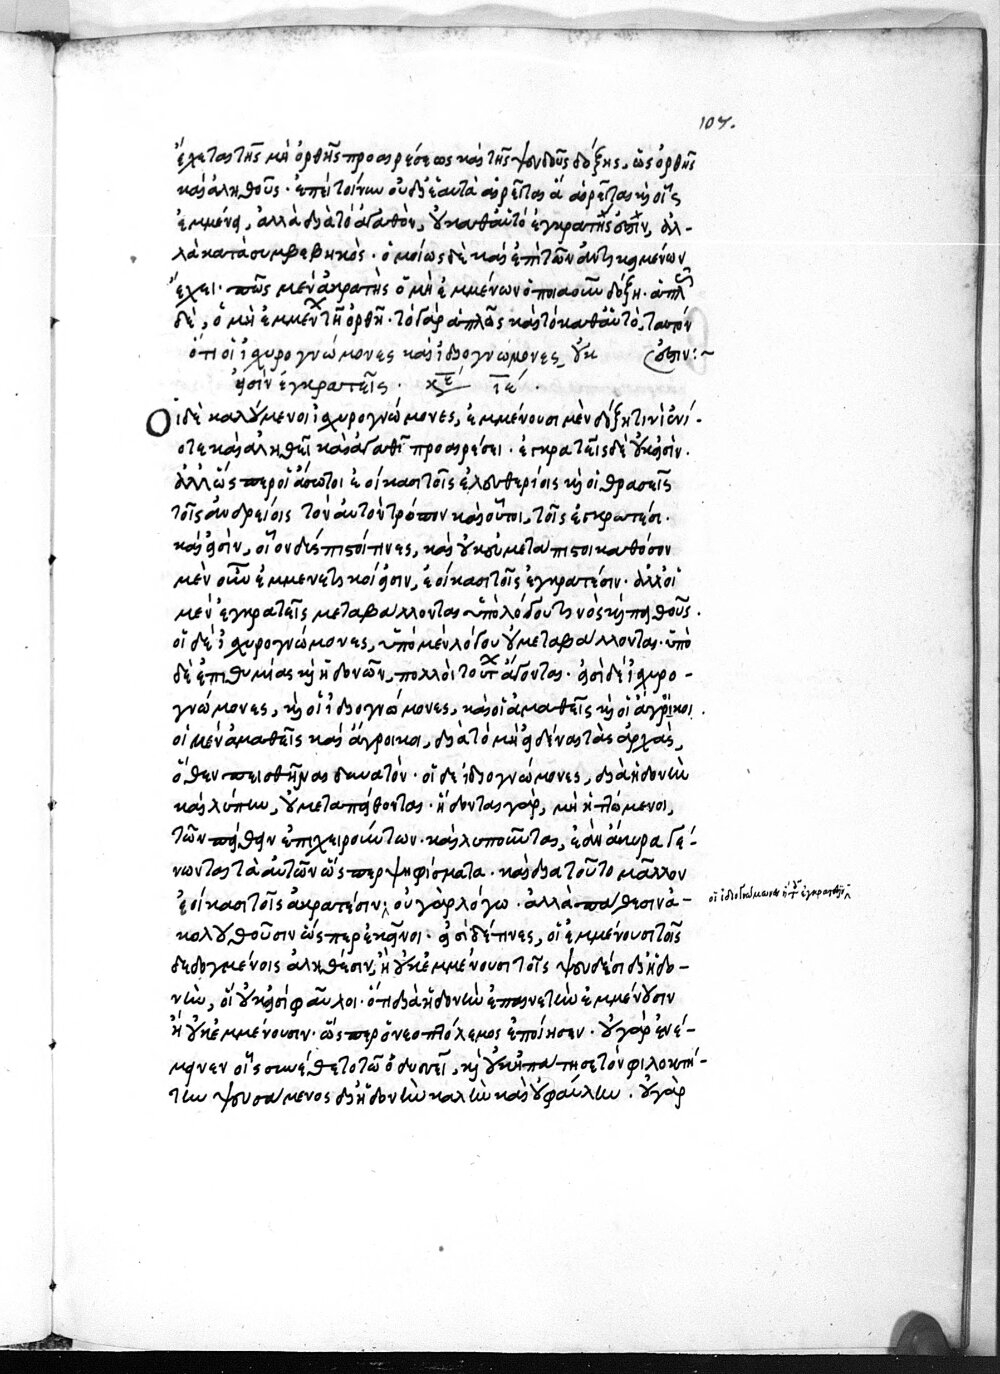 107.
ἕλεται τῆς μὴ ὀρθῆς προαιρέσεως καὶ τῆς ψευδοῦς δόξης, ὡς ὀρθῆς
καὶ ἀληθοῦς. ἐπεὶ τοίνυν οὐ δι' ἑαυτὰ αἱρεῖται ἃ αἱρεῖται καὶ οἷς
ἐμμένει, ἀλλὰ διὰ τὸ ἀγαθὸν, οὐ καθ' αὑτὸ ἐγκρατής ἐστιν, ἀλ-
λὰ κατὰ συμβεβηκός. ὁμοίως δὲ καὶ ἐπὶ τῶν ἀντικειμένων
ἔχει. πῶς μὲν ἀκρατὴς ὁ μὴ ἐμμένων ὁποιαοῦν δόξῃ. ἁπλῶς
δὲ, ὁ μὴ ἐμμένων τῇ ὀρθῇ. τὸ γὰρ ἁπλῶς καὶ τὸ καθ' αὑτὸ, ταυτόν
ἐστιν:~
ὅτι οἱ ἰσχυρογνώμονες καὶ ἰδιογνώμονες οὐκ
εἰσὶν ἐγκρατεῖς. κε ιε.
Οἱ δὲ καλούμενοι ἰσχυρογνώμονες, ἐμμένουσι μὲν δόξῃ τινὶ ἐνί-
οτε καὶ ἀληθεῖ καὶ ἀγαθῇ προαιρέσει. ἐγκρατεῖς δὲ οὐκ εἰσίν.
ἀλλ' ὥσπερ οἱ ἄσωτοι ἐοίκασι τοῖς ἐλευθερίοις καὶ οἱ θρασεῖς
τοῖς ἀνδρείοις τὸν αὐτὸν τρόπον καὶ οὗτοι, τοῖς ἐγκρατέσι.
καὶ εἰσὶν, οἷον δύσπιστοί τινες, καὶ οὐκ εὐμετάπιστοι καθόσον
μὲν οὖν ἐμμενετικοί εἰσιν, ἐοίκασι τοῖς ἐγκρατέσιν. ἀλλ' οἱ
μὲν ἐγκρατεῖς μεταβάλλονται ὑπὸ λόγου τινὸς καὶ πάθους.
οἱ δὲ ἰσχυρογνώμονες, ὑπὸ μὲν λόγου οὐ μεταβάλλονται. ὑπὸ
δὲ ἐπιθυμίας καὶ ἡδονῶν, πολλοὶ τούτων ἄγονται. εἰσὶ δὲ ἰσχυρο-
γνώμονες, καὶ οἱ ἰδιογνώμονες, καὶ οἱ ἀμαθεῖς καὶ οἱ ἄγροικοι.
οἱ μὲν ἀμαθεῖς καὶ ἄγροικοι, διὰ τὸ μὴ εἰδέναι τὰς ἀρχὰς,
ὅθεν πεισθῆναι δυνατόν. οἱ δὲ ἰδιογνώμονες, δι' ἡδονὴν
καὶ λύπην, οὐ μεταπείθονται. ἥδονται γὰρ, μὴ ἡττώμενοι,
τῶν πείθειν ἐπιχειρούντων. καὶ λυποῦνται, ἐὰν ἄκυρα γέ-
νωνται τὰ αὐτῶν ὥσπερ ψηφίσματα. καὶ διὰ τοῦτο μᾶλλον
ἐοίκασι τοῖς ἀκρατέσιν, οὐ γὰρ λόγῳ. ἀλλὰ πάθεσιν ἀ-
κολουθοῦσιν ὥσπερ ἐκεῖνοι. εἰσὶ δέ τινες, οἳ ἐμμένουσι τοῖς
δεδογμένοις ἀληθέσιν, ἢ οὐκ ἐμμένουσι τοῖς ψευδέσι δι' ἡδο-
νὴν, οἳ οὐκ εἰσὶ φαῦλοι. ὅτι δι' ἡδονὴν ἐπαινετὴν ἐμμένουσιν
ἢ οὐκ ἐμμένουσιν. ὥσπερ ὁ νεοπτόλεμος ἐποίησεν. οὐ γὰρ ἐνέ-
μεινεν οἷς συνέθετο τῷ ὀδυσσεῖ, καὶ οὐκ ἠπάτησε τὸν φιλοκτή-
την ψευσάμενος δι' ἡδονὴν καλὴν καὶ οὐ φαύλην. οὐ γὰρ